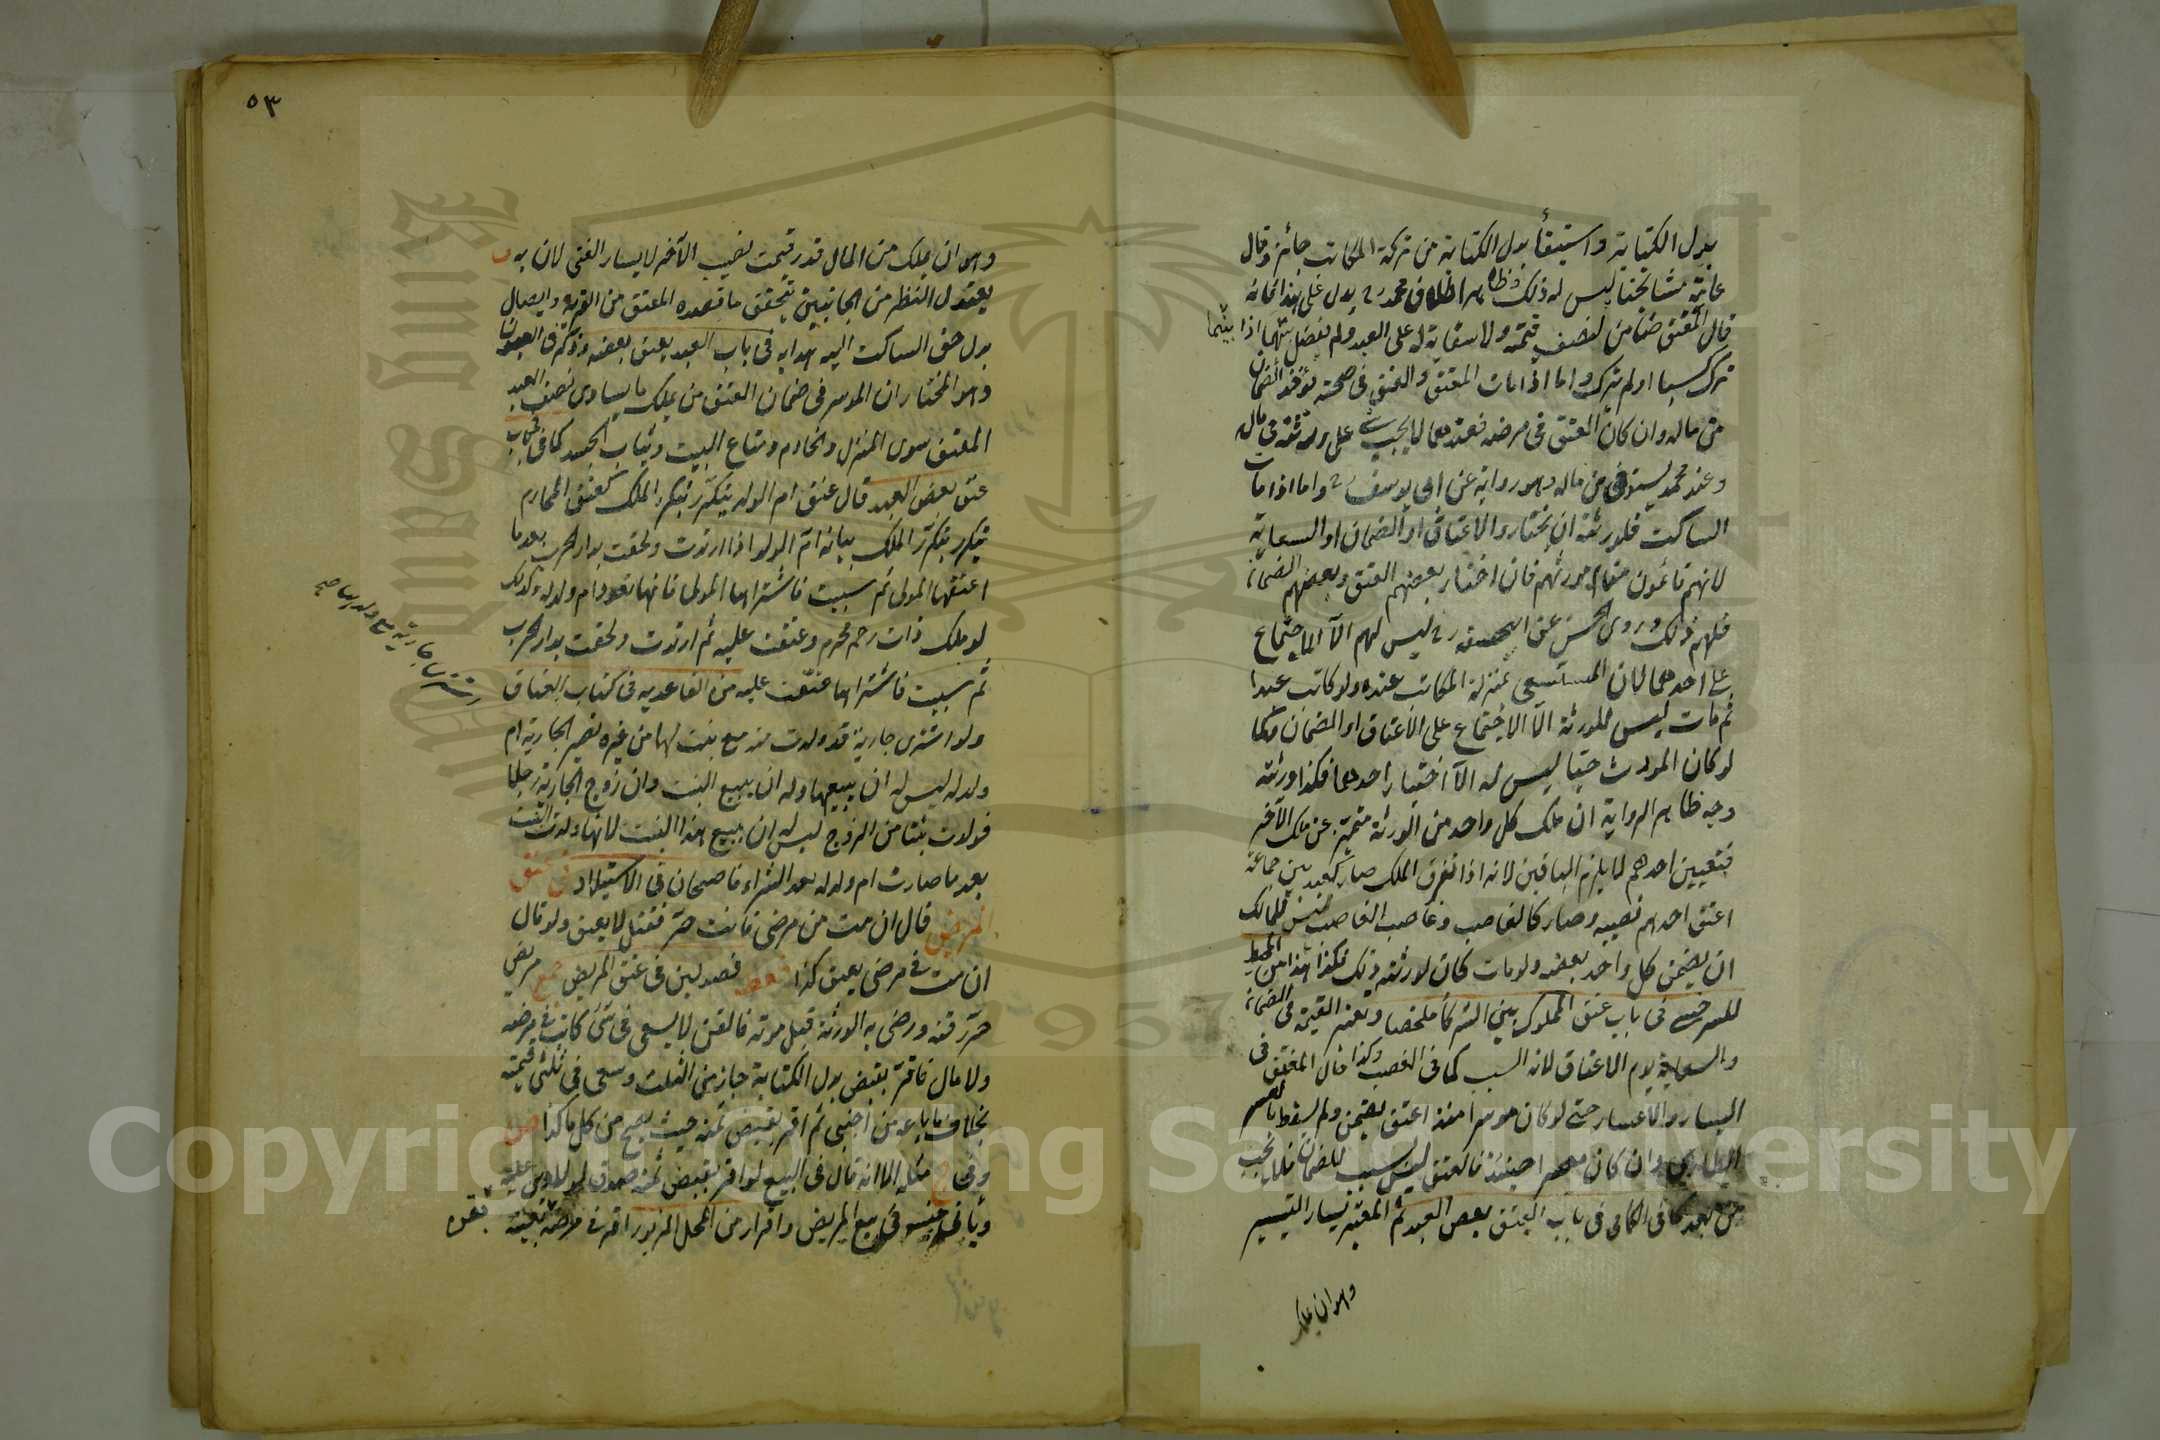 بدل الكتابة واستيفأ بدل الكتابة من تركة المكاتب جائز وقال
عامة مشايخنا ليس له ذلك وظاهر اطلاق محمد رح يدل على هذا فانه
قال المعتق ضامن لنصف قيمته ولا سعاية له على العبد ولم يفصل بينهما اذا
ترك كسبا او لم يترك واما اذا مات المعتق والعتق في صحته يؤخذ الضمان
من ماله وان كان العتق في مرضه فعندهما لا يجب شئ على ورثته في ماله
وعند محمد يستوفى من ماله وهو رواية عن ابي يوسف رح واما اذا مات
الساكت فلورثته ان يختاروا الاعتاق او الضمان او السعاية
لانهم قائمون مقام مورثهم فان اختار بعضهم العتق وبعضهم الضمان
فلهم ذلك وروى الحسن عن ابي حنيفة رح ليس لهم الا الاجتماع
على احدهما لان المستسعى بمنزلة المكاتب عنده ولو كاتب عبدا
ثم مات ليس للورثة الا الاجتماع على الاعتاق او الضمان وكما
لو كان المورث حيا ليس له الا اختيار احدهما فكذا ورثته
وجه ظاهر الرواية ان ملك كل واحد من الورثة متميز عن ملك الآخر
فتعيين احدهم لا يلزم الباقين لانه اذا تفرق الملك صار كعبد بين جماعة
اعتق احدهم نصيبه وصار كالغاصب وغاصب الغاصب فللمالك
ان يضمن كل واحد بعضه ولو مات كان لورثته ذلك فكذا هذا من المحيط
للسرخسي في باب عتق المملوك بين الشركأ ملخصا ويعتبر القيمة في الضمان
والسعاية يوم الاعتاق لانه السبب كما في الغصب وكذا حال المعتق في
اليسار والاعسار حتى لو كان موسرا منذ اعتق يضمن ولم يسقط بالعسر
الطارئ وان كان معسرا حينئذ فالعتق ليس بسبب للضمان فلا يجب
من بعد كما في الكافي في باب العتق بعض العبد ثم المعتبر يسار التيسير
وهو ان يملك
٥٣
وهو ان يملك من المال قدر قيمت نصيب الآخر لا يسار الغنى لان به
يعتدل النظر من الجانبين بتحقق ما قصده المعتق من القربة وايصال
بدل حق الساكت اليه هدايه في باب العبد يعتق بعضه
وهو المختار ان الموسر في ضمان العتق من يملك ما يساوى نصف العبد
المعتق سوى المنزل والخادم ومتاع البيت وثياب الجسد كما في
عتق بعض العبد قال عتق ام الولد يتكرر بتكرر الملك كعتق المحارم
يتكرر بتكرر الملك بيانه ام الولد اذا ارتدت ولحقت بدار الحرب بعد ما
اعتقها المولى ثم سبيت فاشتراها المولى فانها تعود ام ولد له وكذلك
لو ملك ذات رحم محرم وعتقت عليه ثم ارتدت ولحقت بدار الحرب
ثم سبيت فاشتراها عتقت عليه من القاعديه في كتاب العتاق
ولو اشترى جارية قد ولدت منه مع بنت لها من غيره تصير الجارية ام
ولد له ليس له ان يبيعها وله ان يبيع البنت وان زوج الجارية رجلا
فولدت بنتا من الزوج ليس له ان يبيع هذا البنت لانها ولدت البنت
بعد ما صارت ام ولد له بعد الشراء قاضيخان في الاستيلاد في عتق
المريض قال ان مت من مرضى فانت حر فقتل لا يعتق ولو قال
ان مت في مرضى يعتق كذا فصولين في عتق المريض مريض
حرر قنه ورضى به الورثة قبل موته فالقن لا يسعى في شئ كاتب في مرضه
ولا مال فاقر بقبض بدل الكتابة جاز من الثلث وسعى في ثلثى قيمته
بخلاف ما باعه من اجنبى ثم اقر بقبض ثمنه حيث يصح من كل ماله كذا
وفي مثله الا انه قال في البيع لو اقر بقبض ثمنه صدق لو لا دين عليه
ويأتى جنسه في بيع المريض واقراره من المحل المزبور اقر في مرضه